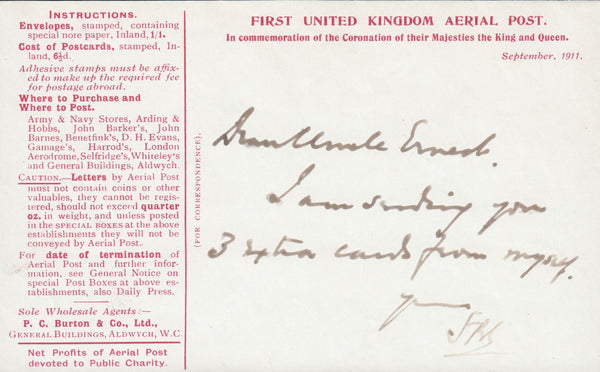 INSTRUCTIONS.
Envelopes, stamped, containing
special note paper, Inland, 1/1.
Cost of Postcards, stamped, In-
land, 6½d.
Adhesive stamps must be affix-
ed to make up the required fee
for postage abroad.
Where to Purchase and
Where to Post.
Army & Navy Stores, Arding &
Hobbs, John Barker's, John
Barnes, Benetfink's, D. H. Evans,
Gamage's, Harrod's, London
Aerodrome, Selfridge's, Whiteley's
and General Buildings, Aldwych.
CAUTION.—Letters by Aerial Post
must not contain coins or other
valuables, they cannot be regis-
tered, should not exceed quarter
oz. in weight, and unless posted
in the SPECIAL BOXES at the above
establishments they will not
be conveyed by Aerial Post.
For date of termination of
Aerial Post and further infor-
mation, see General Notice on
special Post Boxes at above es-
tablishments, also Daily Press.
Sole Wholesale Agents :—
P. C. Burton & Co., Ltd.,
GENERAL BUILDINGS, ALDWYCH, W.C.
Net Profits of Aerial Post
devoted to Public Charity.
(FOR CORRESPONDENCE).
FIRST UNITED KINGDOM AERIAL POST.
In commemoration of the Coronation of their Majesties the King and Queen.
September, 1911.
Dear Uncle Ernest.
I am sending you
3 extra cards from